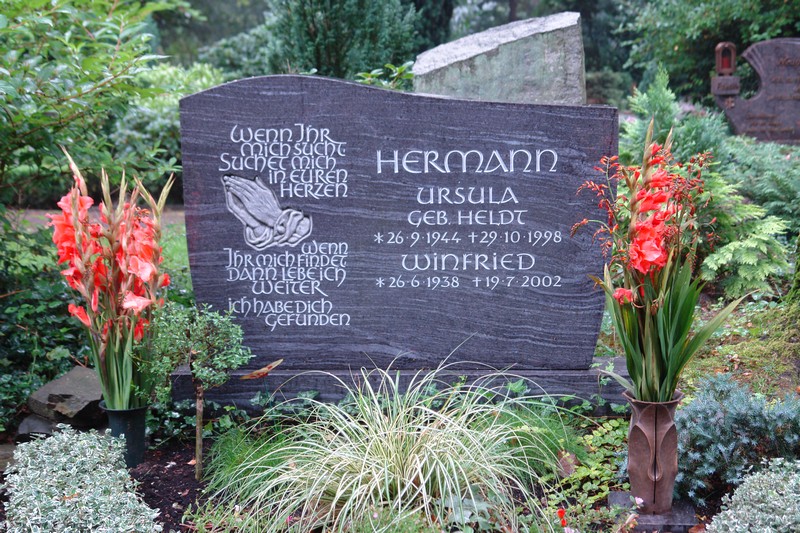 WENN IHR
MICH SUCHT
SUCHET MICH
IN EUREN
HERZEN
WENN
IHR MICH FINDET
DANN LEBE ICH
WEITER
ICH HABE DICH
GEFUNDEN
HERMANN
URSULA
GEB. HELDT
*26·9·1944 +29·10·1998
WINFRIED
*26·6·1938 +19·7·2002